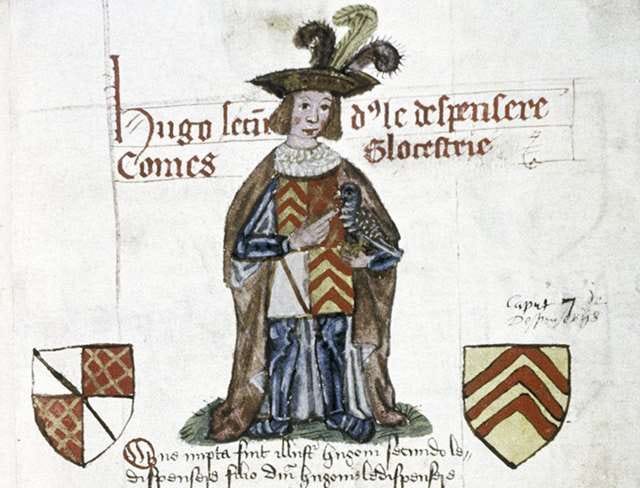 Hugo secūd⁹ le despensere
Comes Glocestrie
Caput 7 de
Que nupta fuit illustʳ hugoni secundo le
dispensere filio dn̄i hugonis ledispensere